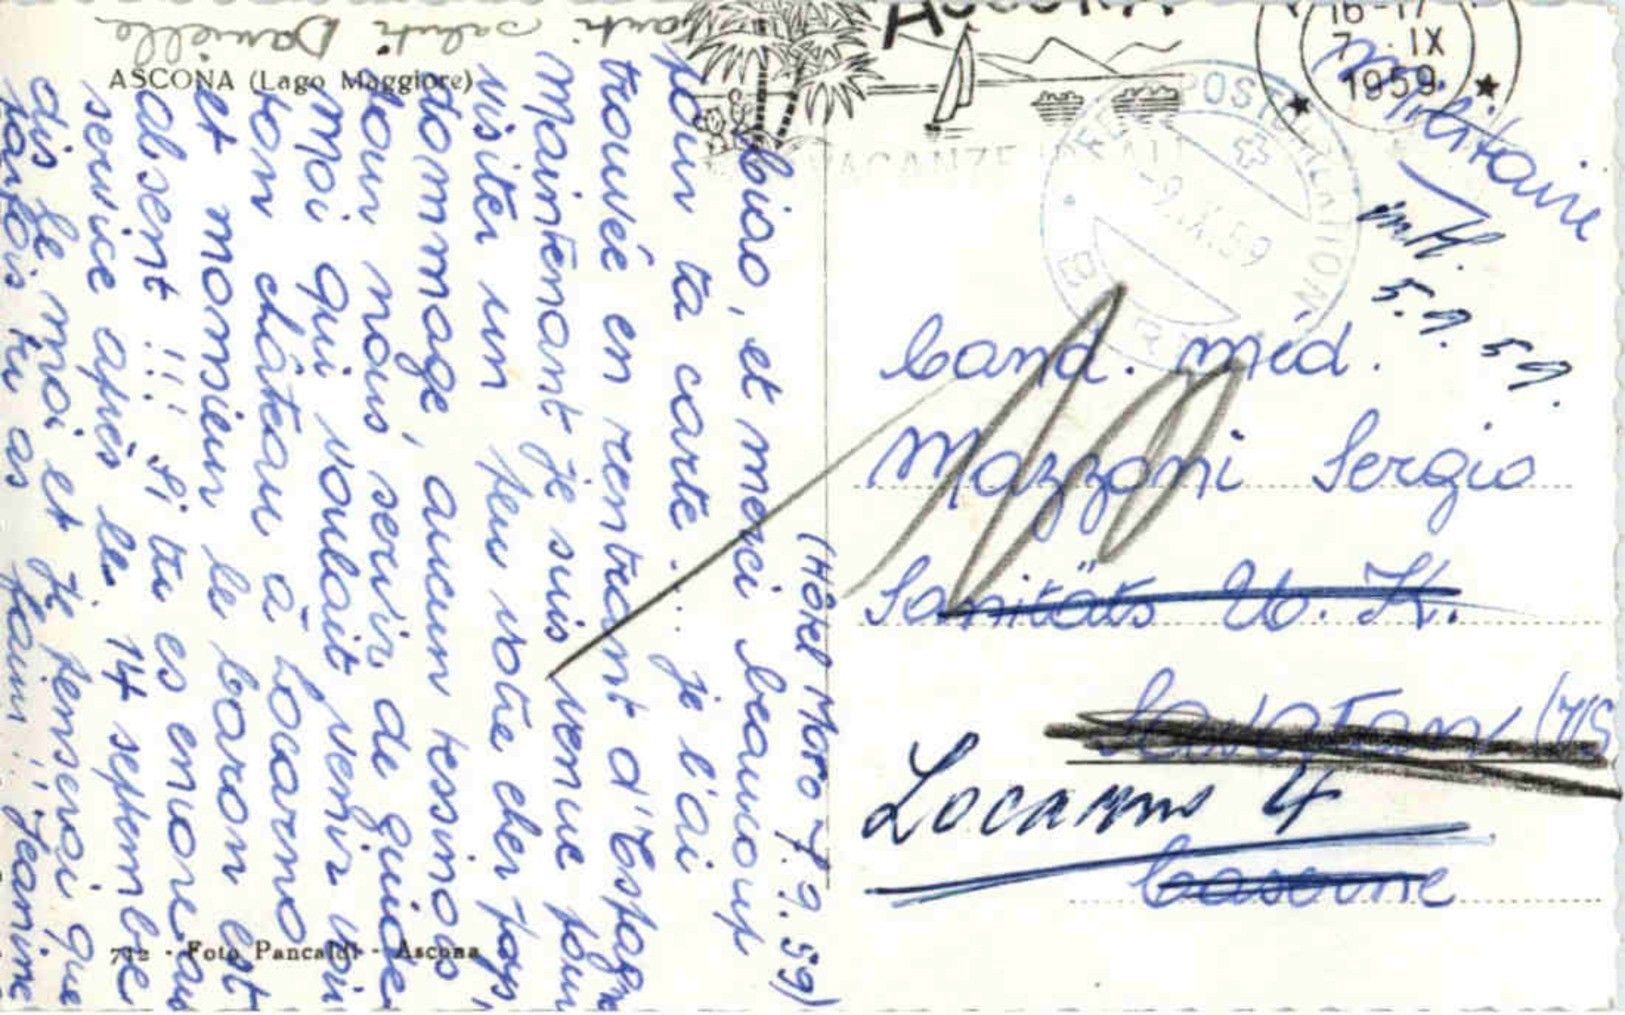 (Hôtel Moro 7.9.59)
Ciao, et merci beaucoup
pour ta carte... je l'ai
trouvée en rentrant d'Espagne
Maintenant je suis venue pour
visiter un peu votre cher pays,
dommage, aucun tessinois
pour nous servir de guide
Moi qui voulait venir voir
ton château à Locarno
et monsieur le baron est
absent !!! Si tu es encore au
service après le 14 septembre
dis le moi et je penserai que
parfois tu as faim !! Jeanine
Tanti saluti Danielle
ASCONA (Lago Maggiore)
712 - Foto Pancaldi - Ascona
ASCONA
VACANZE IDEALI
16-17
7. IX
1959
FELDPOST
-9.IX.59
Militaire
5.9.59.
Cand. méd.
Mazzoni Sergio
Sanitäts U. K.
Savatan (VS
Locarno 4
Caserne